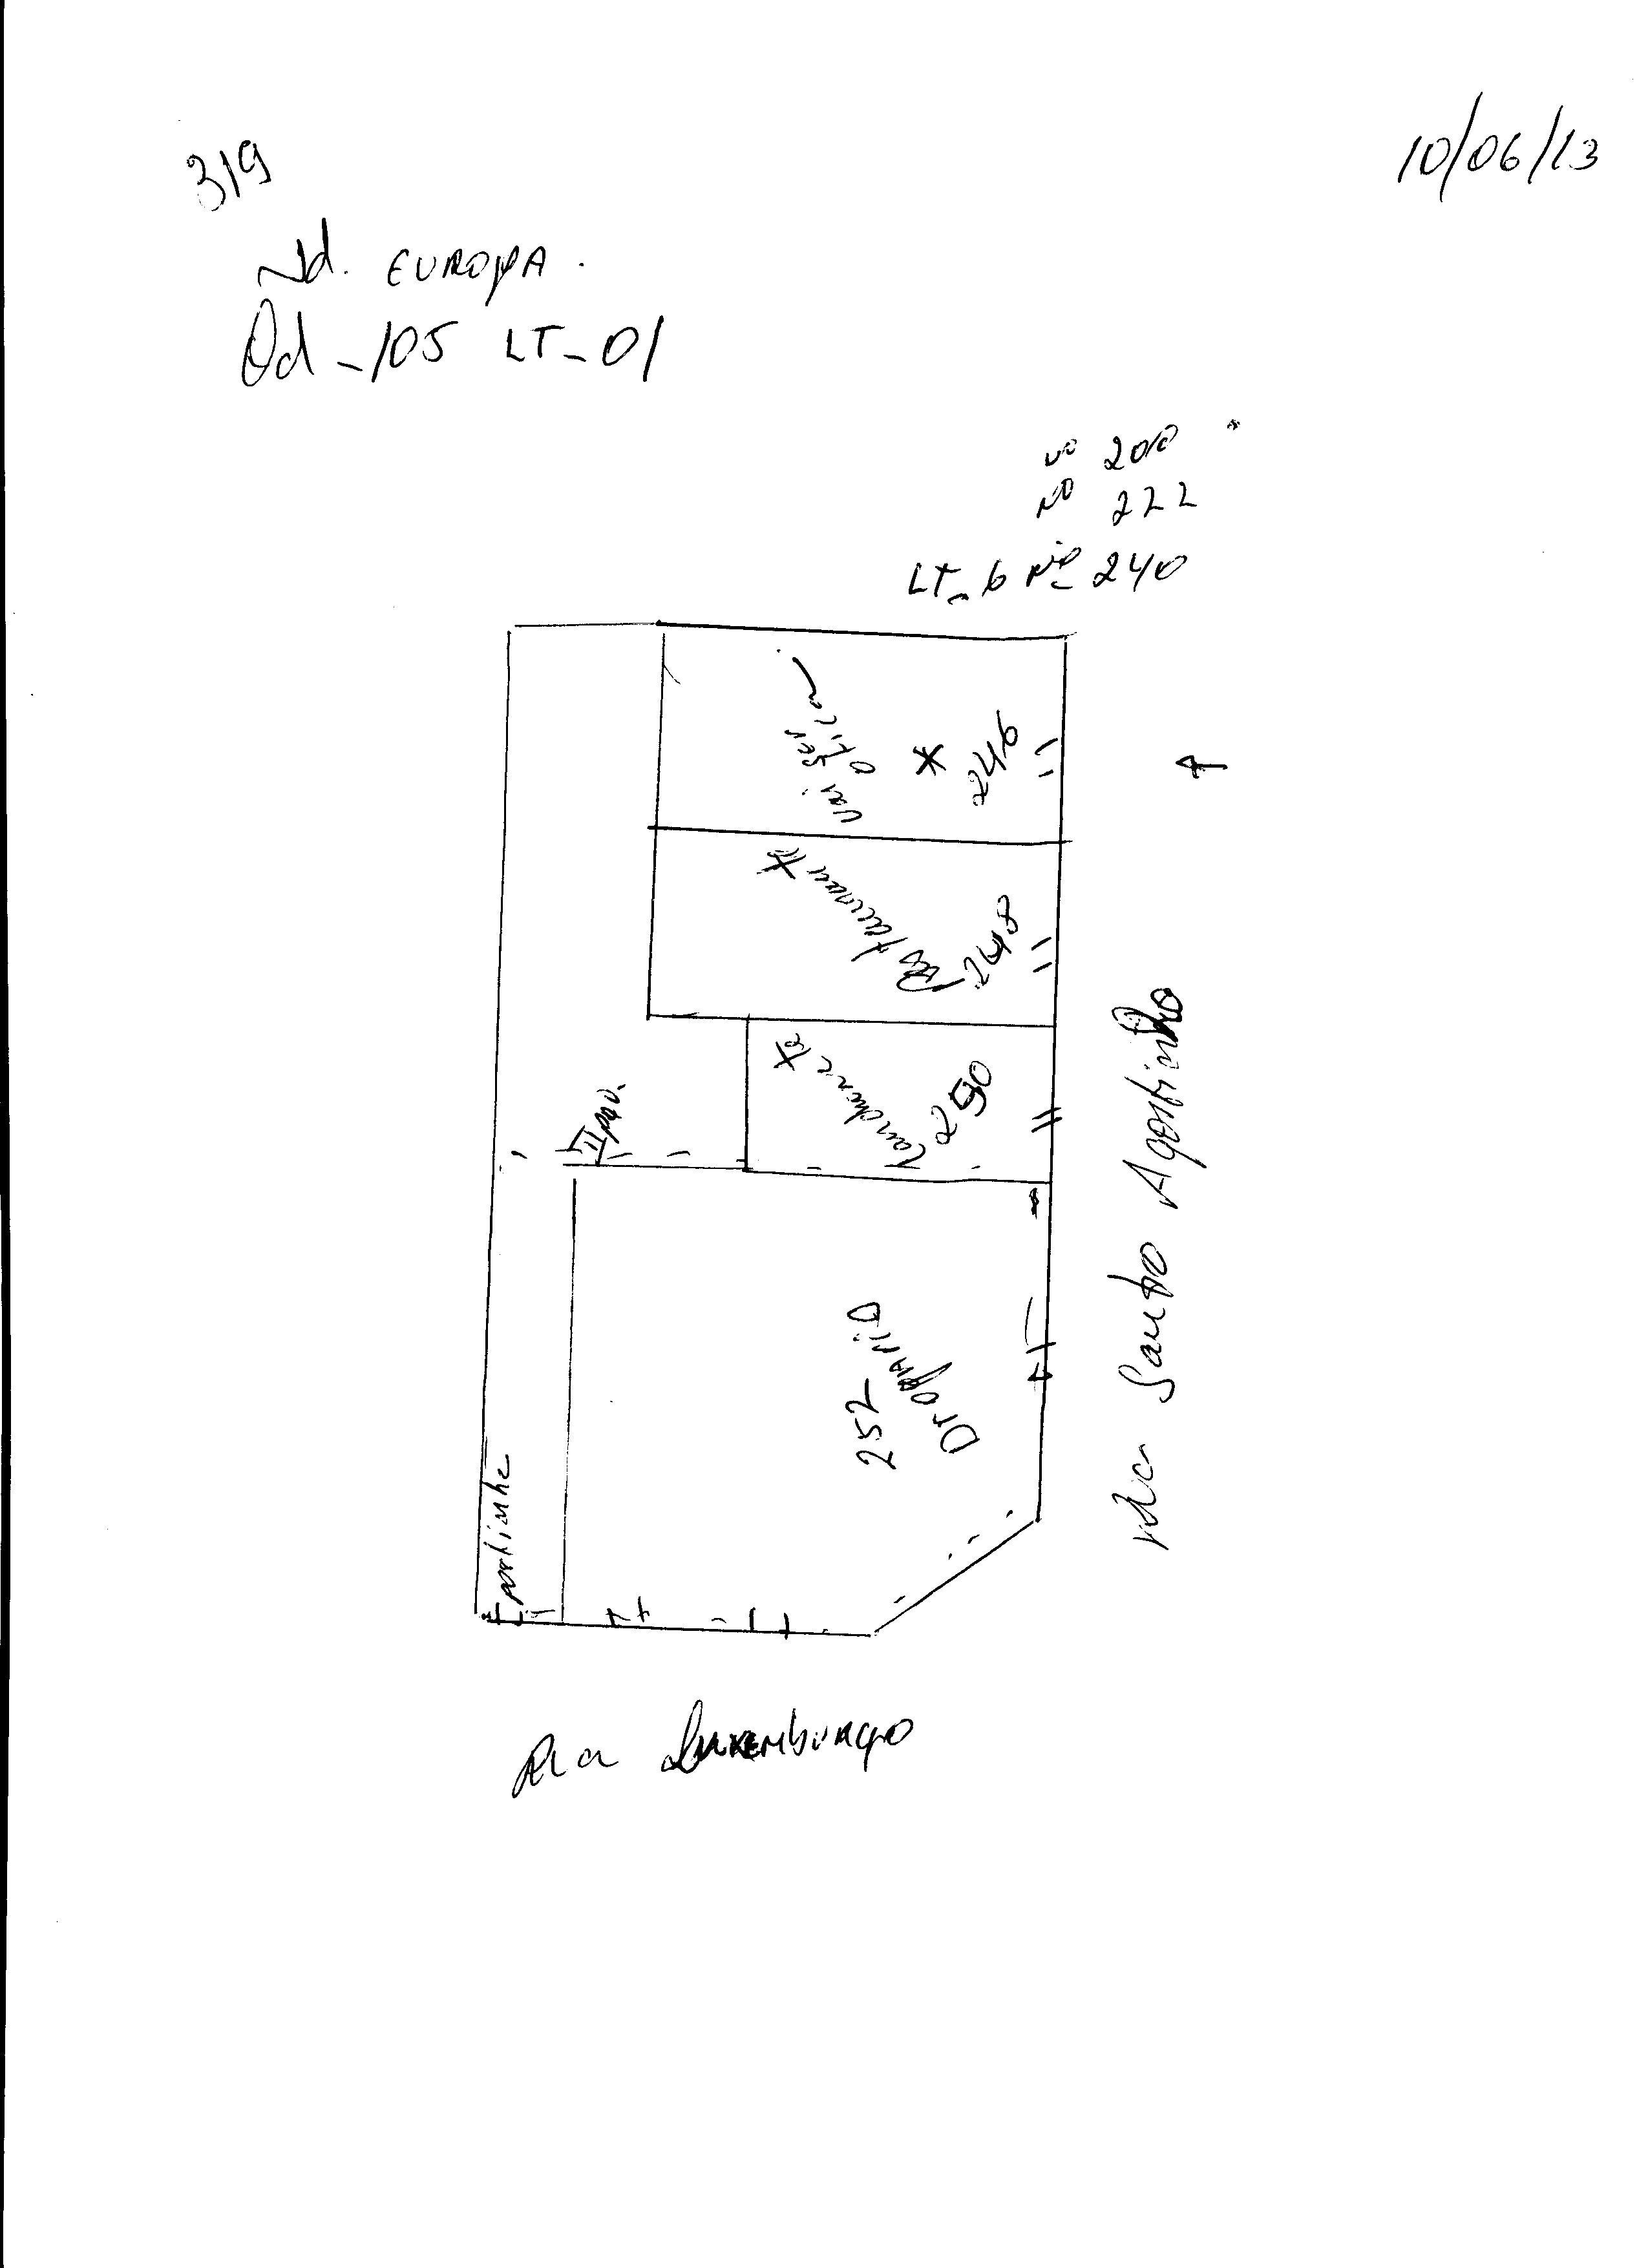 319
10/06/13
Jd. EUROPA.
Qd - 105 LT - 01
nº 200
nº 222
LT - 6 Nº 240
vai ser
otica
* 246
Restaurante
248
Lanchonete
250
II pav.
252
Drogaria
portinha
Rua Santo Agostinho
Rua Luxemburgo